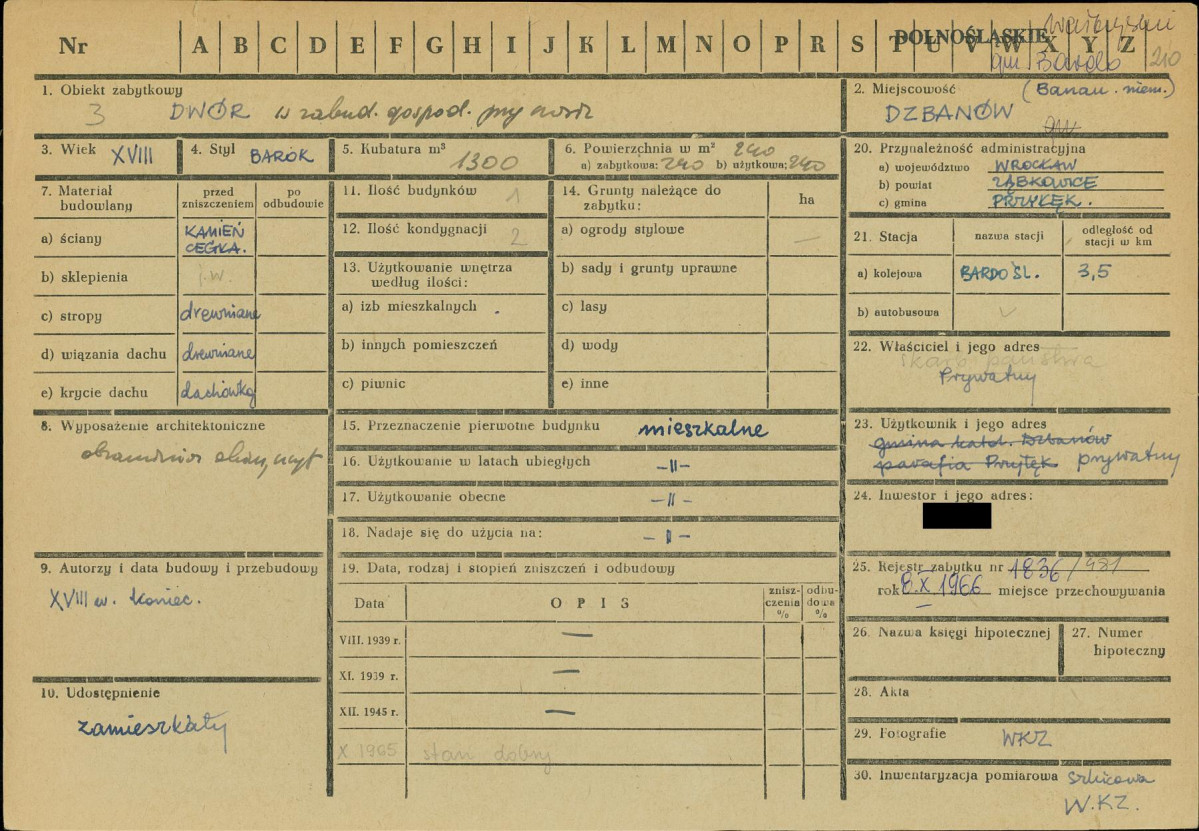 Nr A B C D E F G H I J K L M N O P R S T U V W X Y Z
DOLNOŚLĄSKIE
gm. Bardo 210
1. Obiekt zabytkowy
3 DWÓR w zabud. gospod.
2. Miejscowość (Banau. niem.)
DZBANÓW
3. Wiek XVIII
4. Styl BAROK
5. Kubatura m³ 1300
6. Powierzchnia w m² 240
a) zabytkowa: 240 b) użytkowa: 240
7. Materiał budowlany
przed zniszczeniem
po odbudowie
a) ściany KAMIEŃ CEGŁA.
b) sklepienia j.w.
c) stropy drewniane
d) wiązania dachu drewniane
e) krycie dachu dachówka
8. Wyposażenie architektoniczne
9. Autorzy i data budowy i przebudowy
XVIII w. koniec.
10. Udostępnienie
zamieszkały
11. Ilość budynków 1
12. Ilość kondygnacji 2
13. Użytkowanie wnętrza według ilości:
a) izb mieszkalnych
b) innych pomieszczeń
c) piwnic
14. Grunty należące do zabytku:
ha
a) ogrody stylowe —
b) sady i grunty uprawne
c) lasy
d) wody
e) inne
15. Przeznaczenie pierwotne budynku mieszkalne
16. Użytkowanie w latach ubiegłych —II—
17. Użytkowanie obecne —II—
18. Nadaje się do użycia na: —II—
19. Data, rodzaj i stopień zniszczeń i odbudowy
Data OPIS znisz-czenia % odbu-dowa %
VIII. 1939 r. —
XI. 1939 r. —
XII. 1945 r. —
X 1965 stan dobry
20. Przynależność administracyjna
a) województwo WROCŁAW
b) powiat ZĄBKOWICE
c) gmina PRZYŁĘK.
21. Stacja
nazwa stacji
odległość od stacji w km
a) kolejowa BARDO ŚL. 3,5
b) autobusowa
22. Właściciel i jego adres
skarb państwa
Prywatny
23. Użytkownik i jego adres
gmina katol. Dzbanów
parafia Przyłęk prywatny
24. Inwestor i jego adres:
25. Rejestr zabytku nr 1836/981
rok 8.X 1966 miejsce przechowywania
26. Nazwa księgi hipotecznej
27. Numer hipoteczny
28. Akta
29. Fotografie WKZ
30. Inwentaryzacja pomiarowa szkicowa
W.KZ.